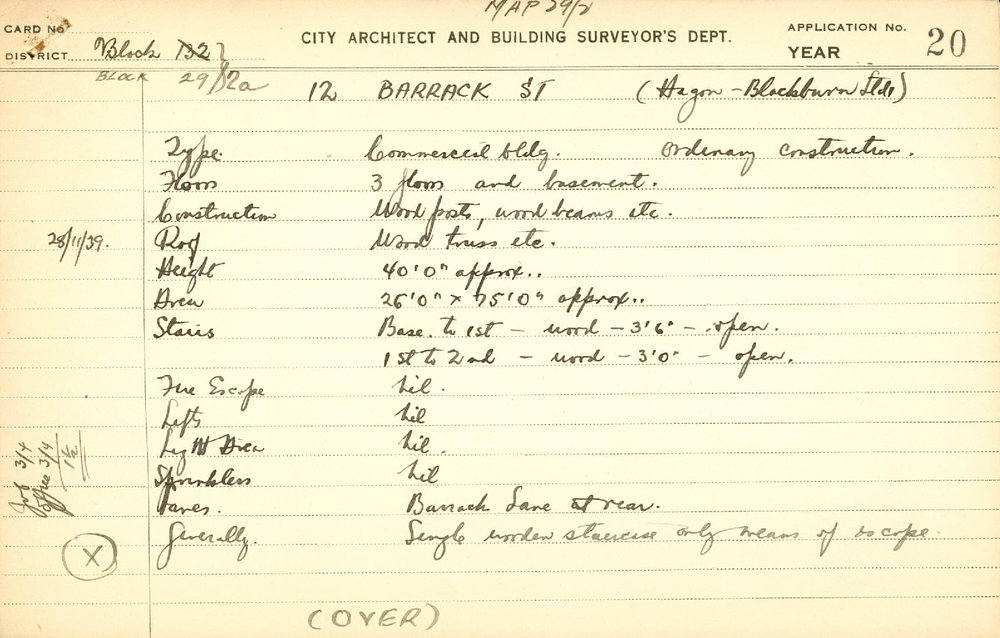 MAP 29/2
CARD No
CITY ARCHITECT AND BUILDING SURVEYOR'S DEPT.
APPLICATION No.
DISTRICT Block 132
YEAR
20
BLOCK 29/12a
12 BARRACK ST (Hagon - Blackburn Ltd)
Type. Commercial bldg. Ordinary construction.
Floors 3 floors and basement.
Construction Wood posts, wood beams etc.
28/11/39. Roof Wood truss etc.
Height 40'0" approx..
Area 26'0" x 75'0" approx..
Stairs Base. to 1st - wood - 3'6" - open.
1st to 2nd - wood - 3'0" - open.
Fire Escape Nil.
Lifts Nil
Light Area Nil.
Sprinklers Nil
Lanes. Barrack Lane at rear.
Generally. Single wooden staircase only means of escape
Job 3/4
Office 3/4
1½
X
(OVER)